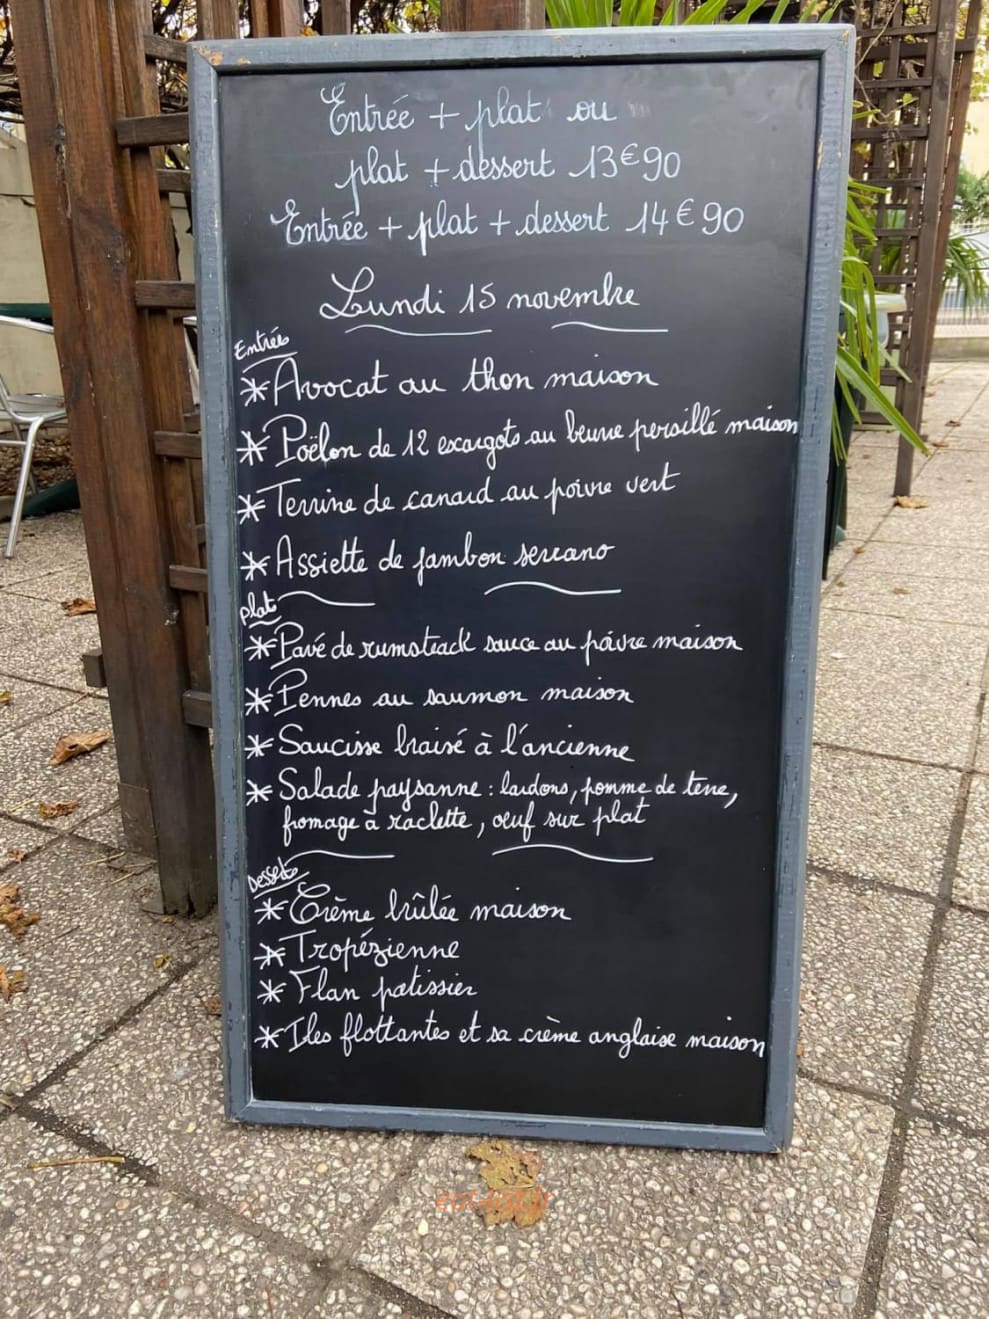 Entrée + plat ou
plat + dessert 13€90
Entrée + plat + dessert 14€90
Lundi 15 novembre
Entrées
* Avocat au thon maison
* Poëlon de 12 escargots au beurre persillé maison
* Terrine de canard au poivre vert
* Assiette de jambon serrano
plat
* Pavé de rumsteack sauce au poivre maison
* Pennes au saumon maison
* Saucisse braisé à l'ancienne
* Salade paysanne : lardons, pomme de terre,
fromage à raclette, oeuf sur plat
Desserts
* Crème brûlée maison
* Tropézienne
* Flan patissier
* Iles flottantes et sa crème anglaise maison
eat-list.fr